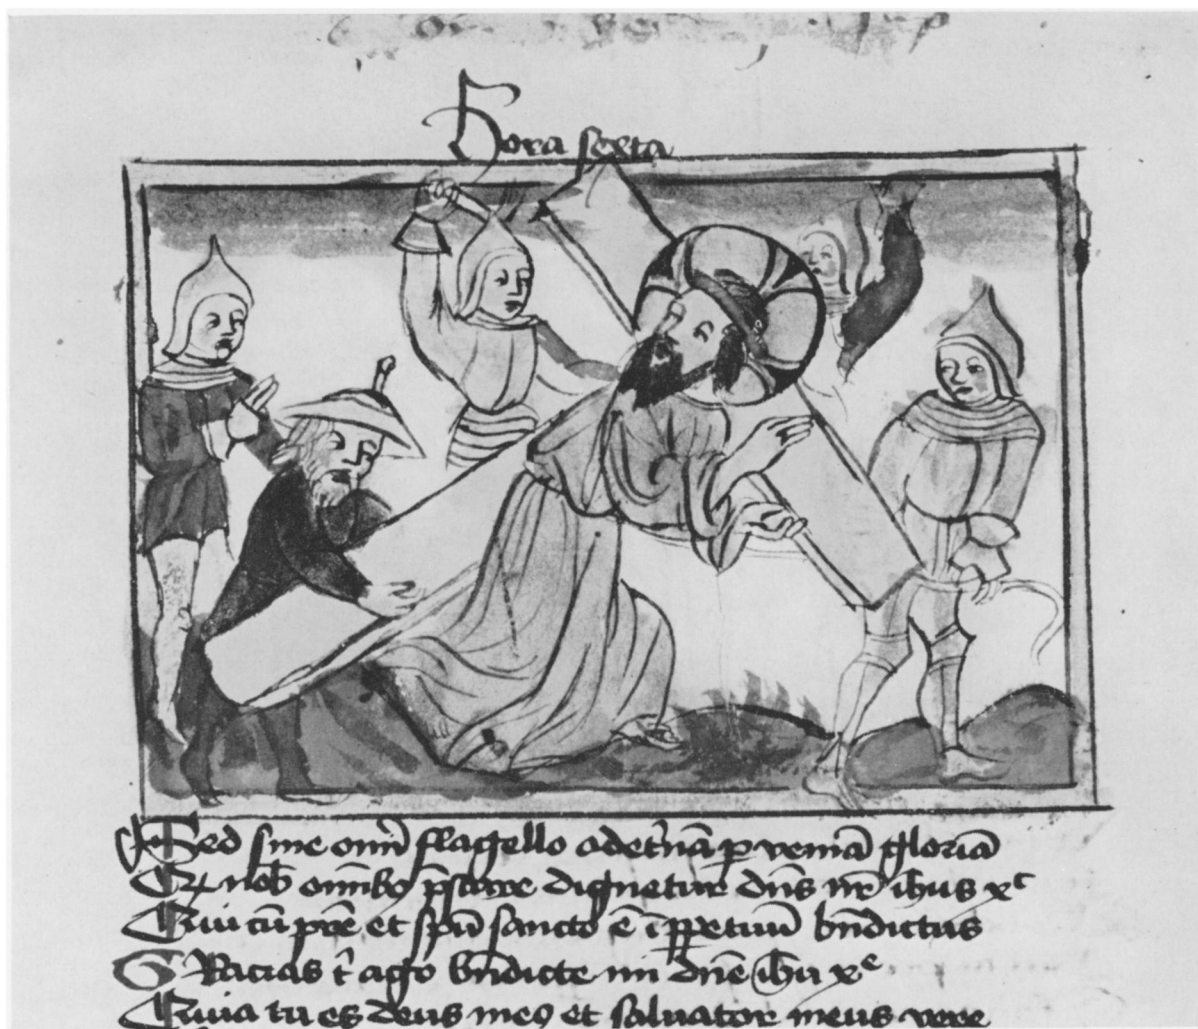 Hora sexta
Sed sine oмi flagello adet'nā p veniā gloriā
Qd nob omibo p̄stare dignetur dn̄s nr̄ ihus xc
Qui cū pr̄e et spū sancto ē ī ꝑpetuū bn̄dictus
Gracias t̄ ago bn̄dicte mi dn̄e ihu xe
Quia tu es deus meꝰ et saluator meus vere